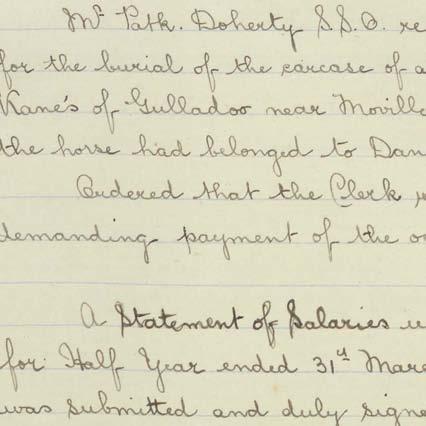 Mr Patk. Doherty S.S.O. re
for the burial of the carcase of a
Kane's of Gulladoo near Moville
the horse had belonged to Dan
Ordered that the Clerk
demanding payment of the
A Statement of Salaries
for Half Year ended 31st Marc
was submitted and duly signe